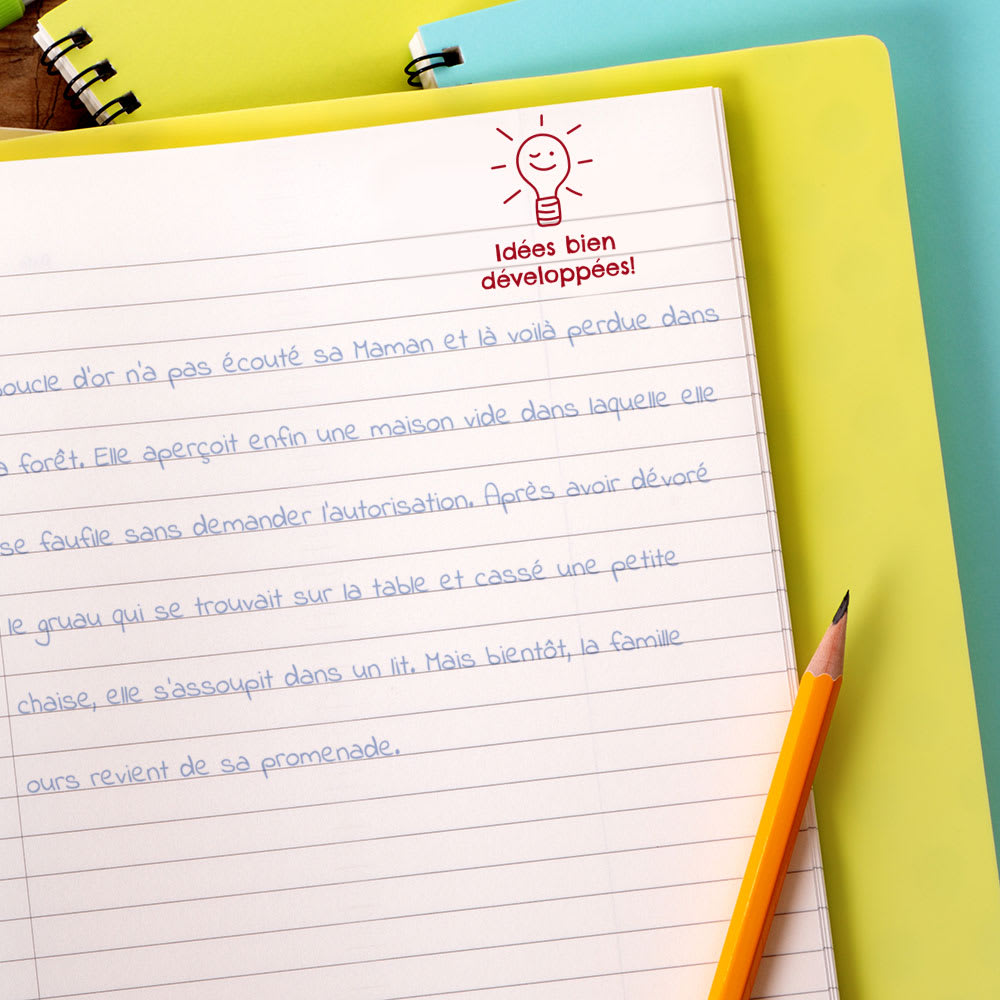 Idées bien
développées!
oucle d'or n'a pas écouté sa Maman et là voilà perdue dans
a forêt. Elle aperçoit enfin une maison vide dans laquelle elle
se faufile sans demander l'autorisation. Après avoir dévoré
le gruau qui se trouvait sur la table et cassé une petite
chaise, elle s'assoupit dans un lit. Mais bientôt, la famille
ours revient de sa promenade.